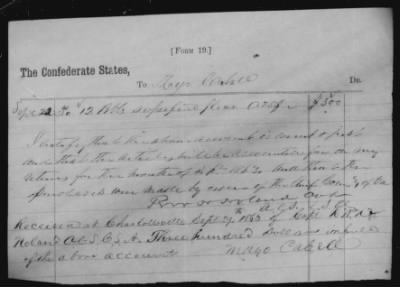 [FORM 19.]
The Confederate States,
To Mayo Cabell Dr.
Sept 22 To 12 Bbls superfine flour $300
I certify that the above account is correct & just
and that the articles will be accounted for on my
returns for the month of and that the
purchases were made by orders of the Chief Com'y of Va
Received at Charlottesville Sept 1863 of Capt R
Noland A.C.S. C.S.A. Three hundred Dollars in full
of the above account
Mayo Cabell